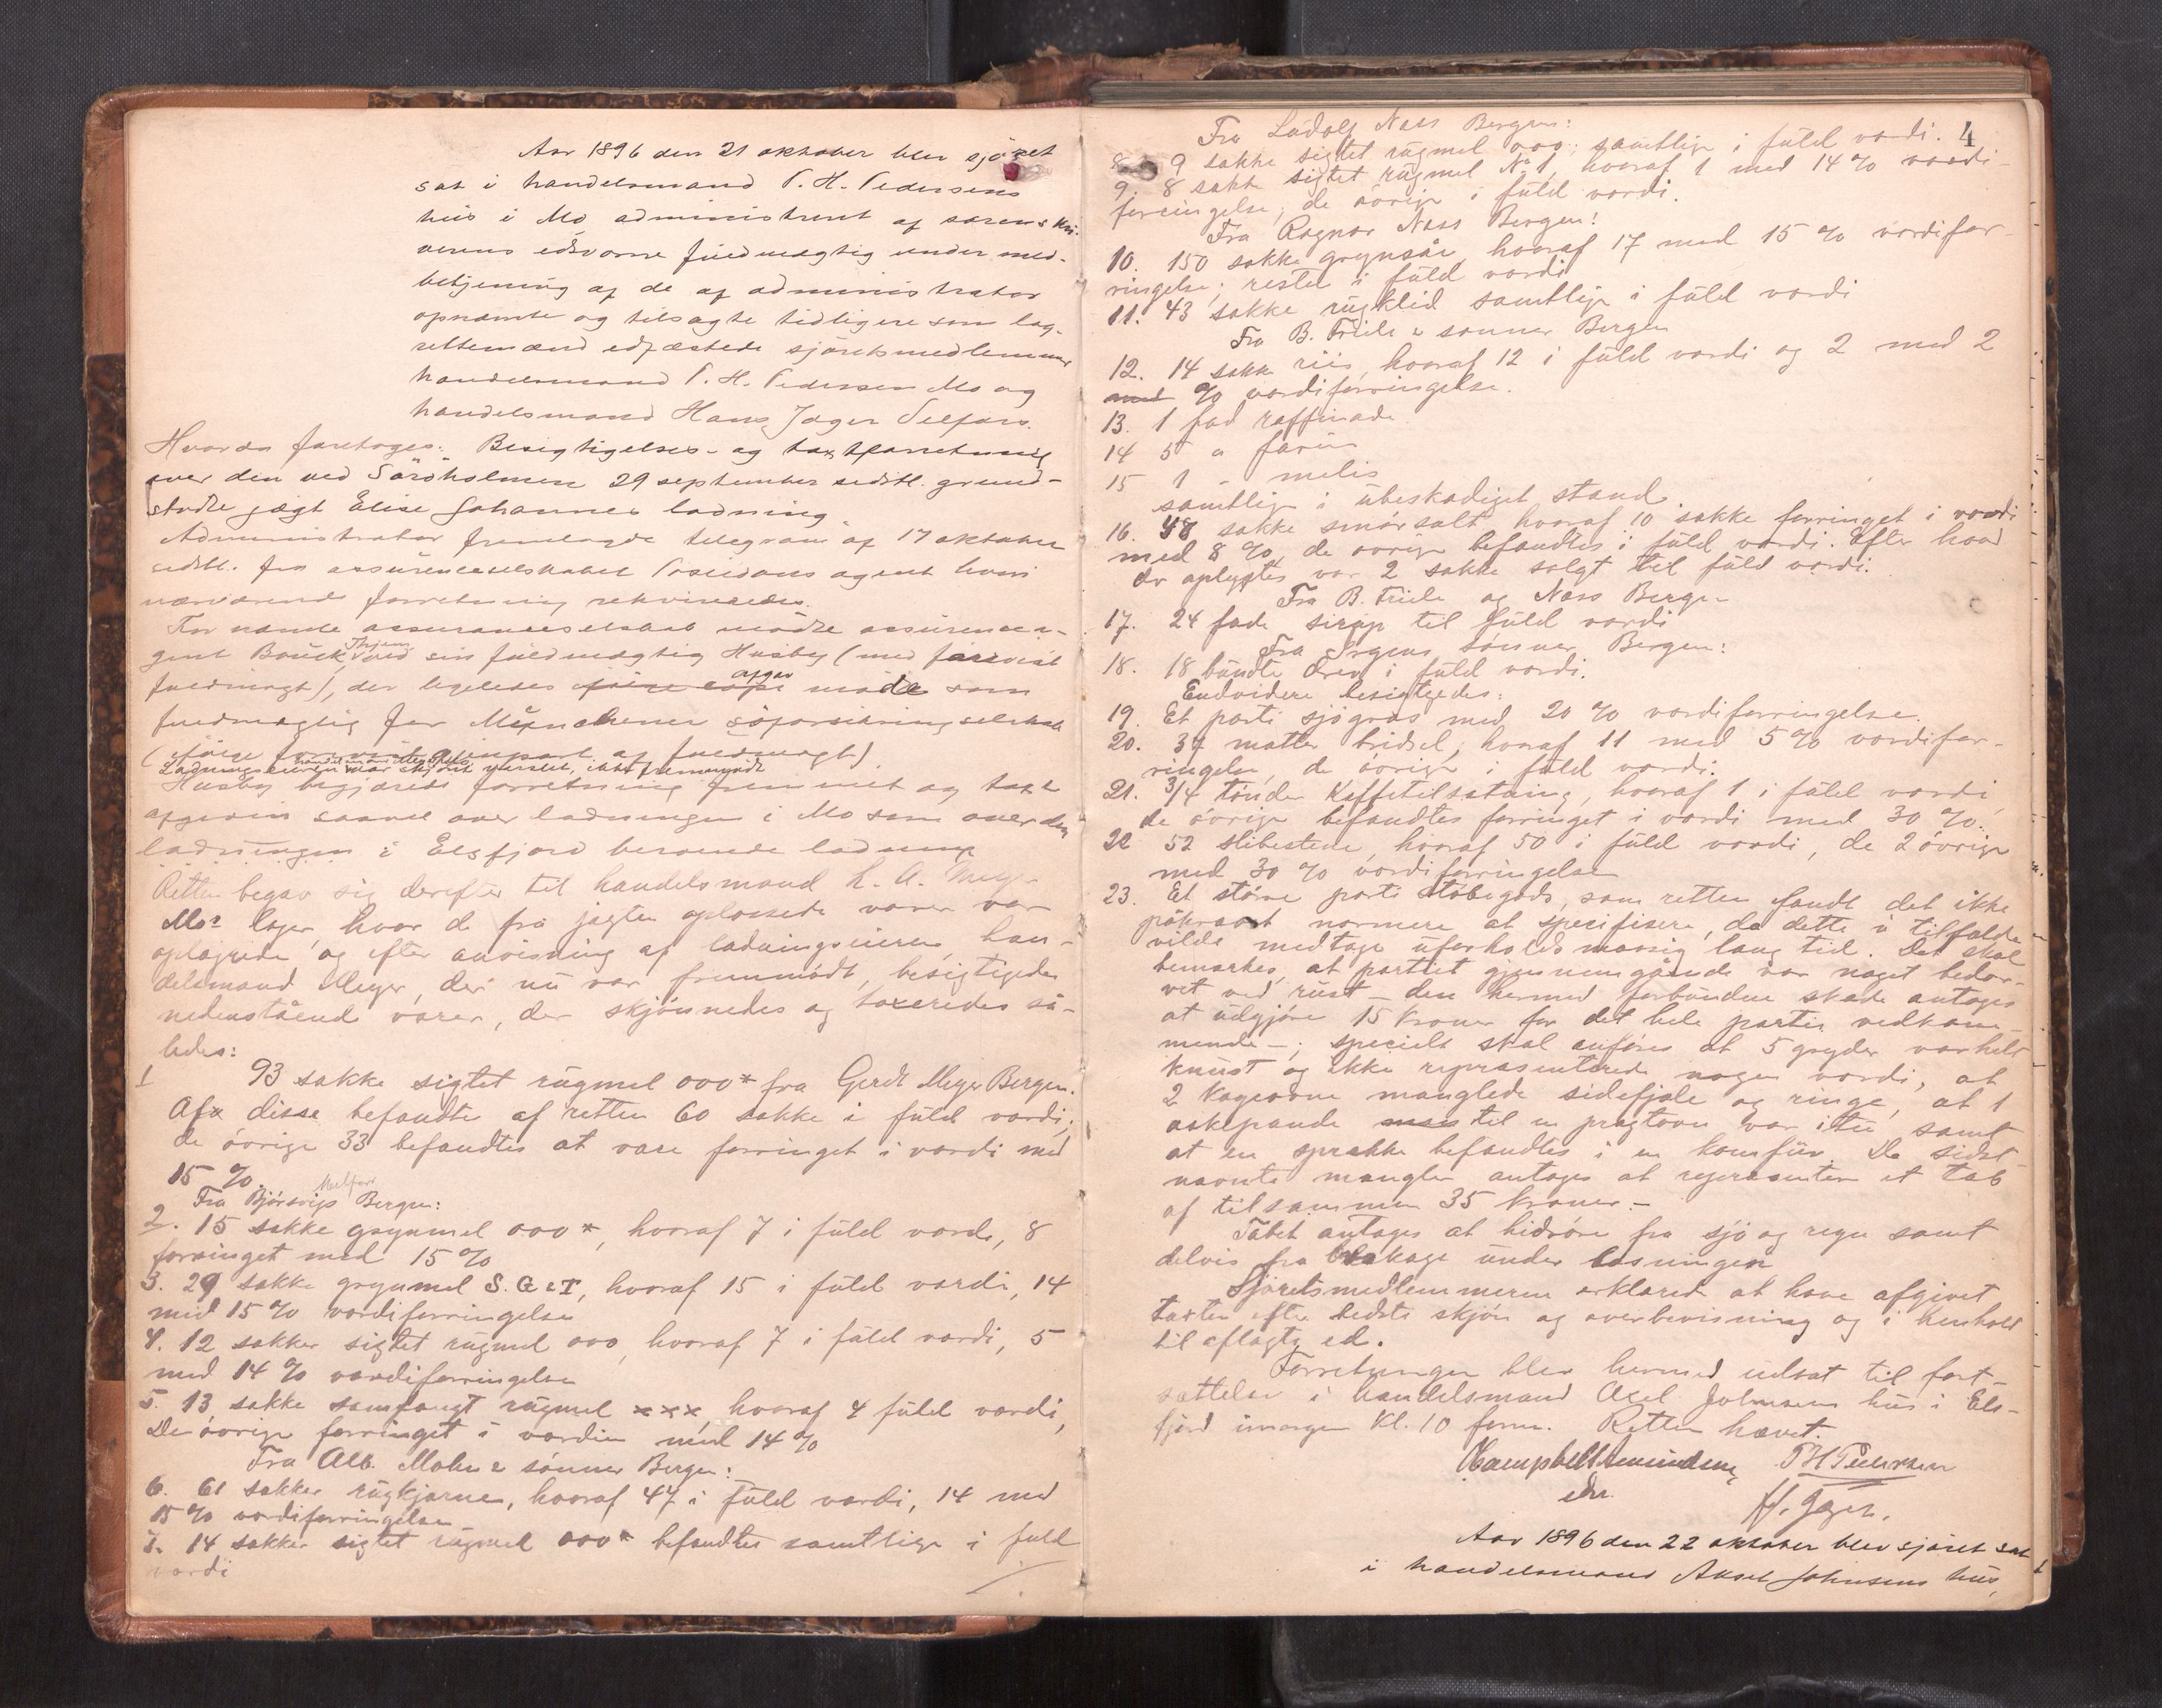 Aar 1896 den 21 oktober blev sjöret
sat i handelsmand P. H. Pedersens
hus i Mo administrert af sorenskri-
verens edsvorne fuldmægtig under med-
betjening af de af administrator
opnævnte og tilsagte tidligere som lag-
rettemænd edfæstede sjöretsmedlemmer
handelsmand P. H. Pedersen Mo og
handelsmand Hans Jager Selfors.
Hvorda foretoges: Besigtigelses- og taxtforretning
over den ved Sörholmen 29 september sidstl. grund-
stödte jægt Elise Johannes ladning
Administrator fremlagde telegram af 17 oktober
sidstl. fra assuranceselskabet Poseidons agent hvori
nærværende forretning rekvireredes.
For nævnte assuranceselskab mödte assurancea-
gent Bouck Thjem ved sin fuldmægtig Husby (med forevist
fuldmagt), der ligeledes afgav möde som
fuldmægtig for Münchener söforsikringsselskab
(ifölge forevist af fuldmagt).
Ladningseieren handelsmand Meyer Mo var skjönt varslet, ikke fremmödt
Husby begjærede forretning fremmet og taxt
afgiven saavel over ladningen i Mo som over den
ladningen i Elsfjord beroende ladning
Retten begav sig derefter til handelsmand L. A. Meyer
Mos lager, hvor de fra jagten oplossede varer var
oplagrede og efter anvisning af ladningseieren, han-
delsmand Meyer, der nu var fremmödt, besigtigedes
nedenstående varer, der skjönnedes og taxeredes så-
ledes:
1 93 sække sigtet rugmel 000* fra Gerdt Meyer Bergen.
Af disse befandtes af retten 60 sække i fuld værdi;
de övrige 33 befandtes at være forringet i værdi med
15 %.
Fra Björsvigs Bergen:
2. 15 sække grynmel 000*, hvoraf 7 i fuld værdi, 8
forringet med 15 %
3. 29 sække grynmel S. G & T, hvoraf 15 i fuld værdi, 14
med 15 % værdiforringelse
4. 12 sækker sigtet rugmel 000, hvoraf 7 i fuld værdi, 5
med 14 % værdiforringelse
5. 13 sække samfængt rugmel xxx, hvoraf 4 fuld værdi,
De övrige forringet i værdien med 14 %
Fra Alb. Mohn & sönner Bergen:
6. 61 sækker rugkjærne, hvoraf 47 i fuld værdi, 14 med
15 % værdiforringelse
7. 14 sækker sigtet rugmel 000* befandtes samtlige i fuld
værdi
4
Fra Ludolf Næss Bergen:
8. 9 sække sigtet rugmel 000; samtlige i fuld værdi.
9. 8 sække sigtet rugmel No 1, hvoraf 1 med 14 % værdi-
forringelse, de övrige i fuld værdi.
Fra Ragnar Næss Bergen:
10. 150 sække grynsåe, hvoraf 17 med 15 % værdifor-
ringelse; resten i fuld værdi
11. 43 sække rugklid samtlige i fuld værdi
Fra B. Friele & sönner Bergen
12. 14 sække riis, hvoraf 12 i fuld værdi og 2 med 2
med % værdiforringelse.
13. 1 fad raffinade
14 5 " farin
15 1 - melis
samtlige i ubeskadiget stand.
16. 48 sække smörsalt hvoraf 10 sække forringet i værdi
med 8 %, de övrige befandtes i fuld værdi. Efter hvad
der oplystes var 2 sække solgt til fuld værdi.
Fra B. Friele og Næss Bergen
17. 24 fade sirup til fuld værdi
Fra Irgens sönner, Bergen:
18. 18 bundte drev i fuld værdi.
Endvidere besigtigedes:
19. Et parti sjögræs med 20 % værdiforringelse.
20. 37 matter bridsel, hvoraf 11 med 5 % værdifor-
ringelse, de övrige i fuld værdi.
21. 3/4 tönder kaffetilsætning, hvoraf 1 i fuld værdi,
de övrige befandtes forringet i værdi med 30 %.
22 52 slibestene, hvoraf 50 i fuld værdi, de 2 övrige
med 30 % værdiforringelse
23. Et större parti stöbegods, som retten fandt det ikke
påkrævet nærmere at specifisere, da dette i tilfælde
vilde medtage uforholdsmæssig lang tid. Det skal
bemærkes, at partiet gjennemgående var noget bedær-
vet ved rust - den hermed forbundne skade antages
at udgjöre 15 kroner for det hele partis vedkom-
mende -; specielt skal anföres at 5 gryder var helt
knust og ikke repræsenterede nogen værdi, at
2 kogeovne manglede sidefjæle og ringe, at 1
askepande til en pragtovn var itu samt
at en sprække befandtes i en komfur. De sidst-
nævnte mangler antages at repræsentere et tab
af tilsammen 35 kroner.-
Tabet antages at hidröre fra sjö og regn samt
delvis fra brækage under losningen
Sjöretsmedlemmerne erklærede at have afgivet
taxten efter bedste skjön og overbevisning og i henhold
til aflagte ed.
Forretningen blev hermed udsat til fort-
sættelse i handelsmand Axel Johnsens hus i Els-
fjord imorgen kl. 10 form. Retten hævet.
Campbell Amundsen P H Pedersen
edsv.
H. Jager.
Aar 1896 den 22 oktober blev sjöret sat
i handelsmand Aksel Johnsens hus,